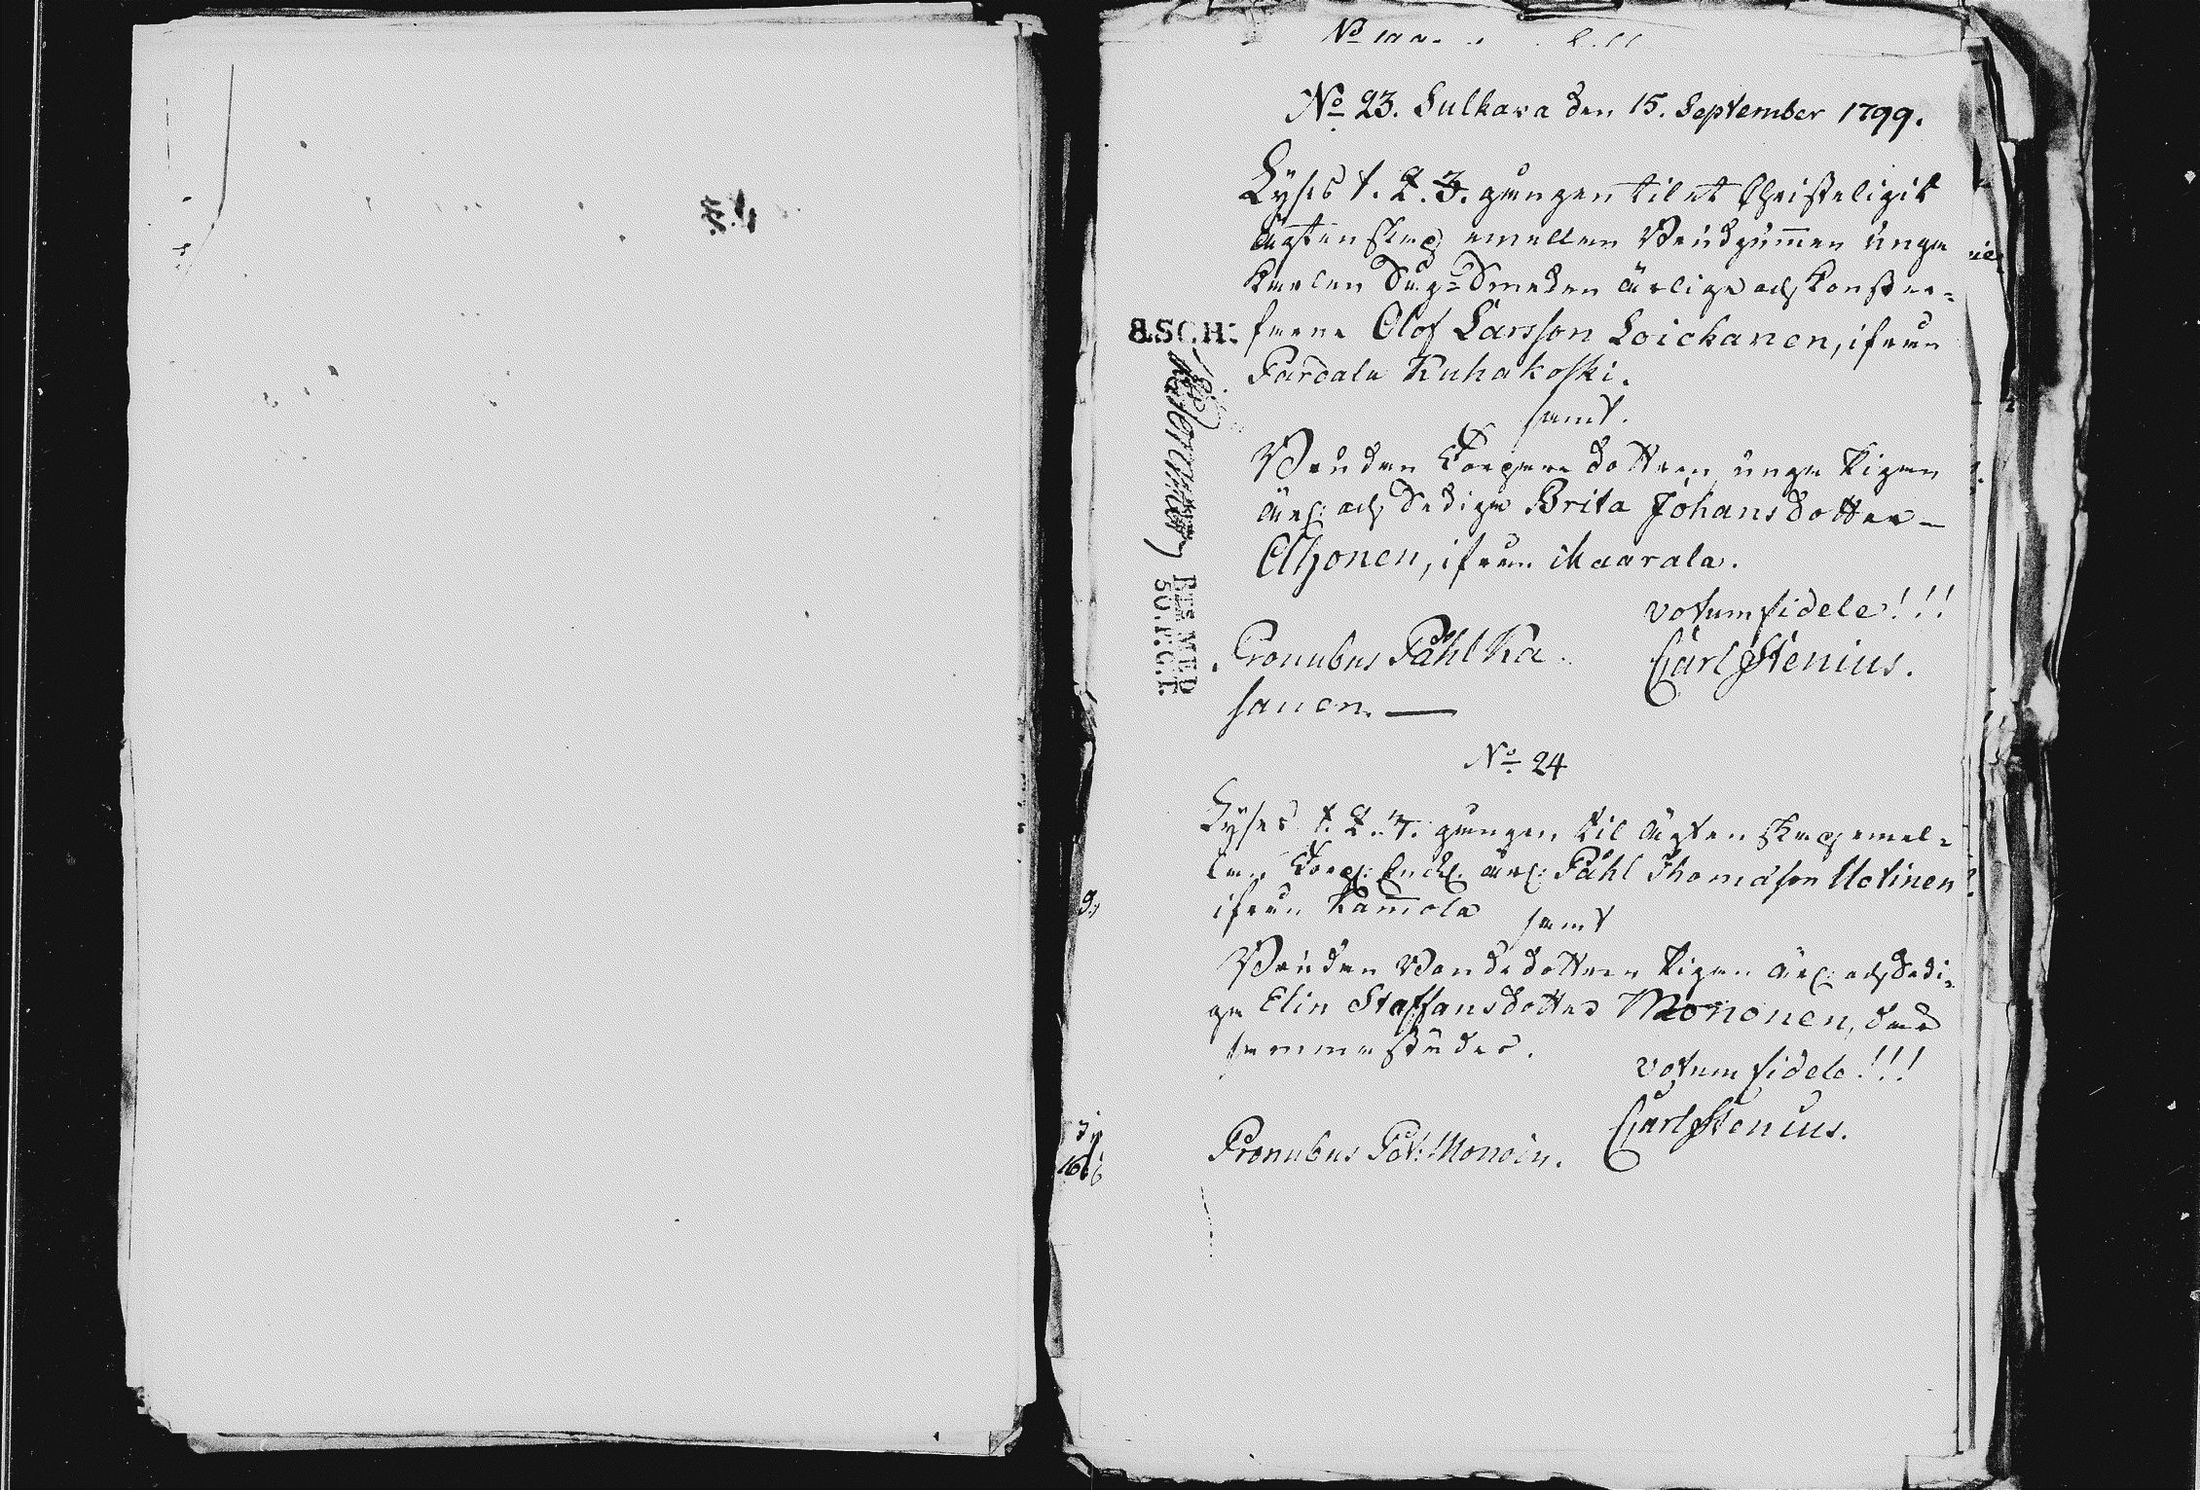 No 23. Sulkava den 15. September 1799.
Lyses 1. 2. 3. gången til et Christeligit
ägtenskap emellan Brudgummen unga
Karlen Sag-Smeden ärlige och Konster-
farne Olof Larsson Loickanen, ifrån
Partala Kuhakoski.
samt.
Bruden Torpare dottren unga Pigan
ärl: och Sediga Brita Johansdotter
Ahonen, ifrån Maarala.
votum fidele!!!
Carl Stenius.
Pronubus Påhl Ka
sanen.
8.SCH:
50.
No 24
Lyses 1. 2. 3. gången til ägtenskap emel-
lan Torp: Enckl. ärl: Påhl Thomasson Uotinen
ifrån Kammola
samt
Bruden Bondedottren Pigan ärl: och Sedi-
ga Elin Staffansdotter Mononen, der
sammastädes.
votum fidele!!!
Carl Stenius.
Pronubus Pet: Monoin.